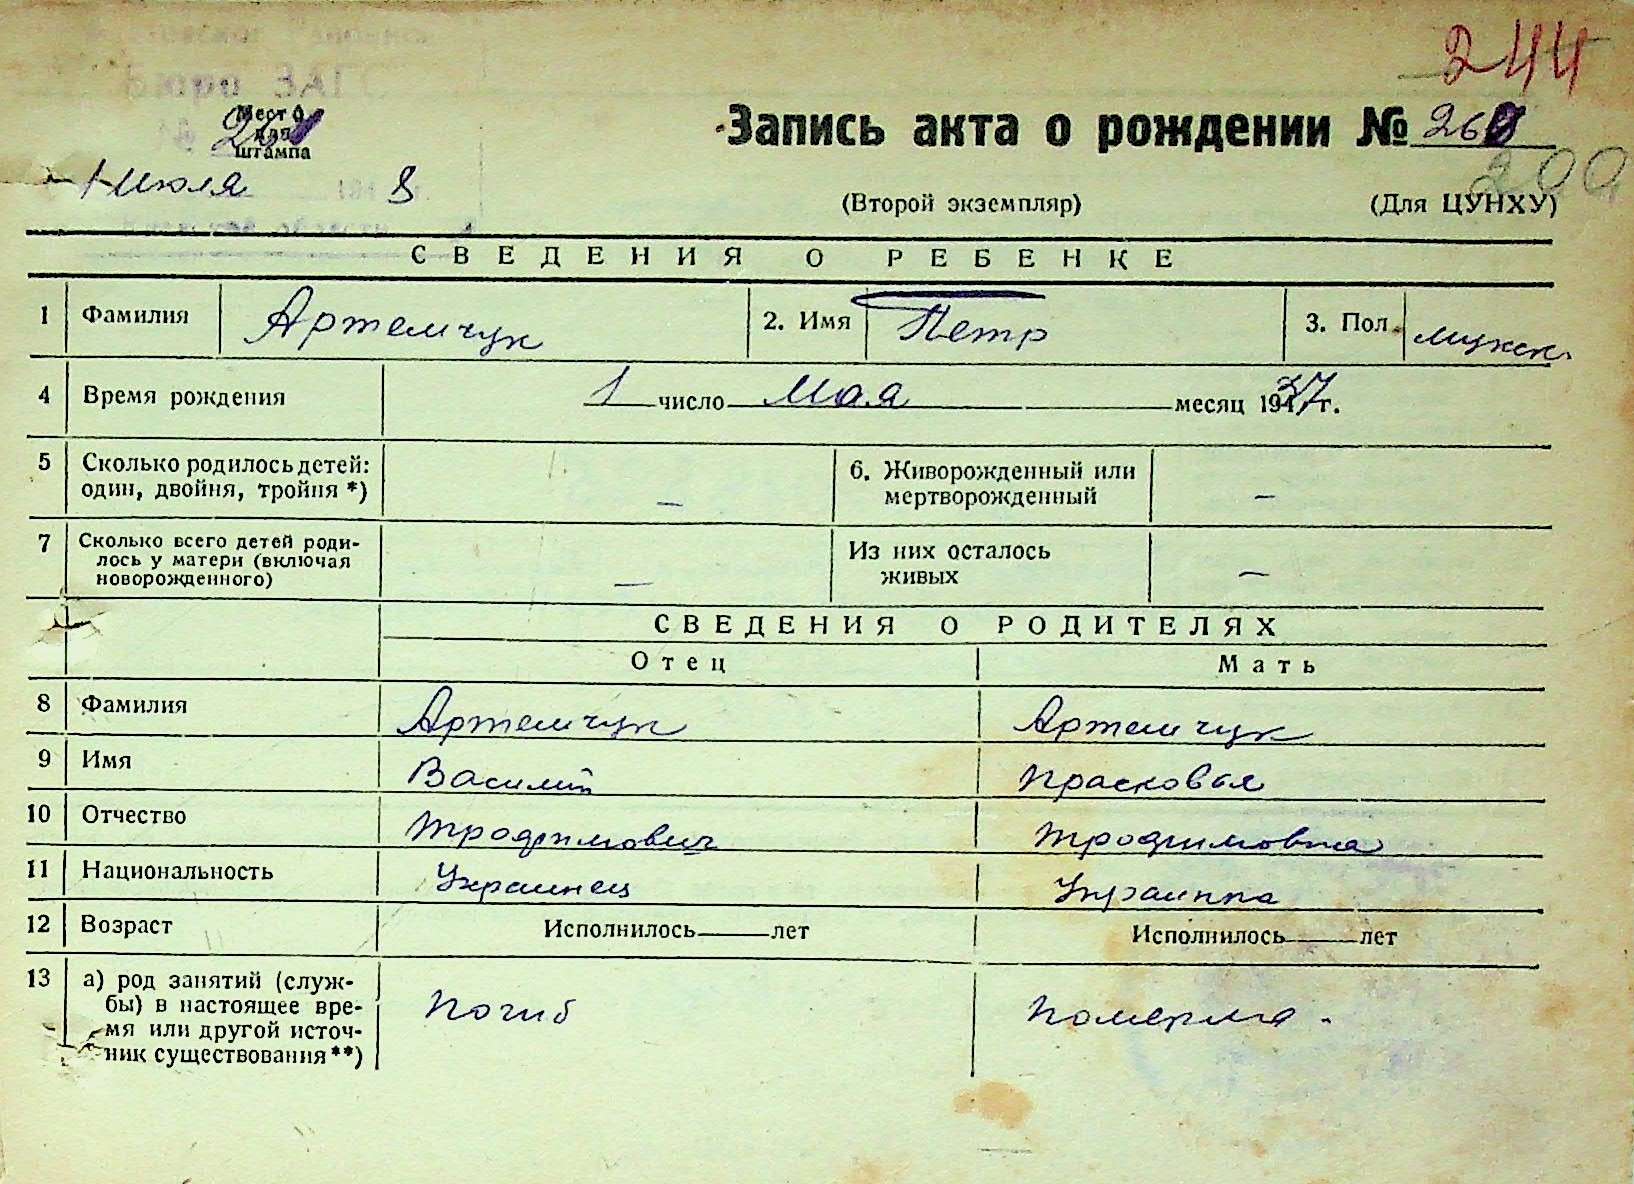 244
Бюро ЗАГС
Место
для
штампа
Запись акта о рождении № 260
200
1 июля 8
(Второй экземпляр) (Для ЦУНХУ)
СВЕДЕНИЯ О РЕБЕНКЕ
1 Фамилия Артемчук 2. Имя Петр 3. Пол мужск.
4 Время рождения 1 число Мая месяц 1937 г.
5 Сколько родилось детей: — 6. Живорожденный или —
один, двойня, тройня *) мертворожденный
7 Сколько всего детей роди- — Из них осталось —
лось у матери (включая живых
новорожденного)
СВЕДЕНИЯ О РОДИТЕЛЯХ
Отец Мать
8 Фамилия Артемчук Артемчук
9 Имя Василий Прасковья
10 Отчество Трофимович Трофимовна
11 Национальность Украинец Украинка
12 Возраст Исполнилось — лет Исполнилось — лет
13 а) род занятий (служ- Погиб Померла.
бы) в настоящее вре-
мя или другой источ-
ник существования **)